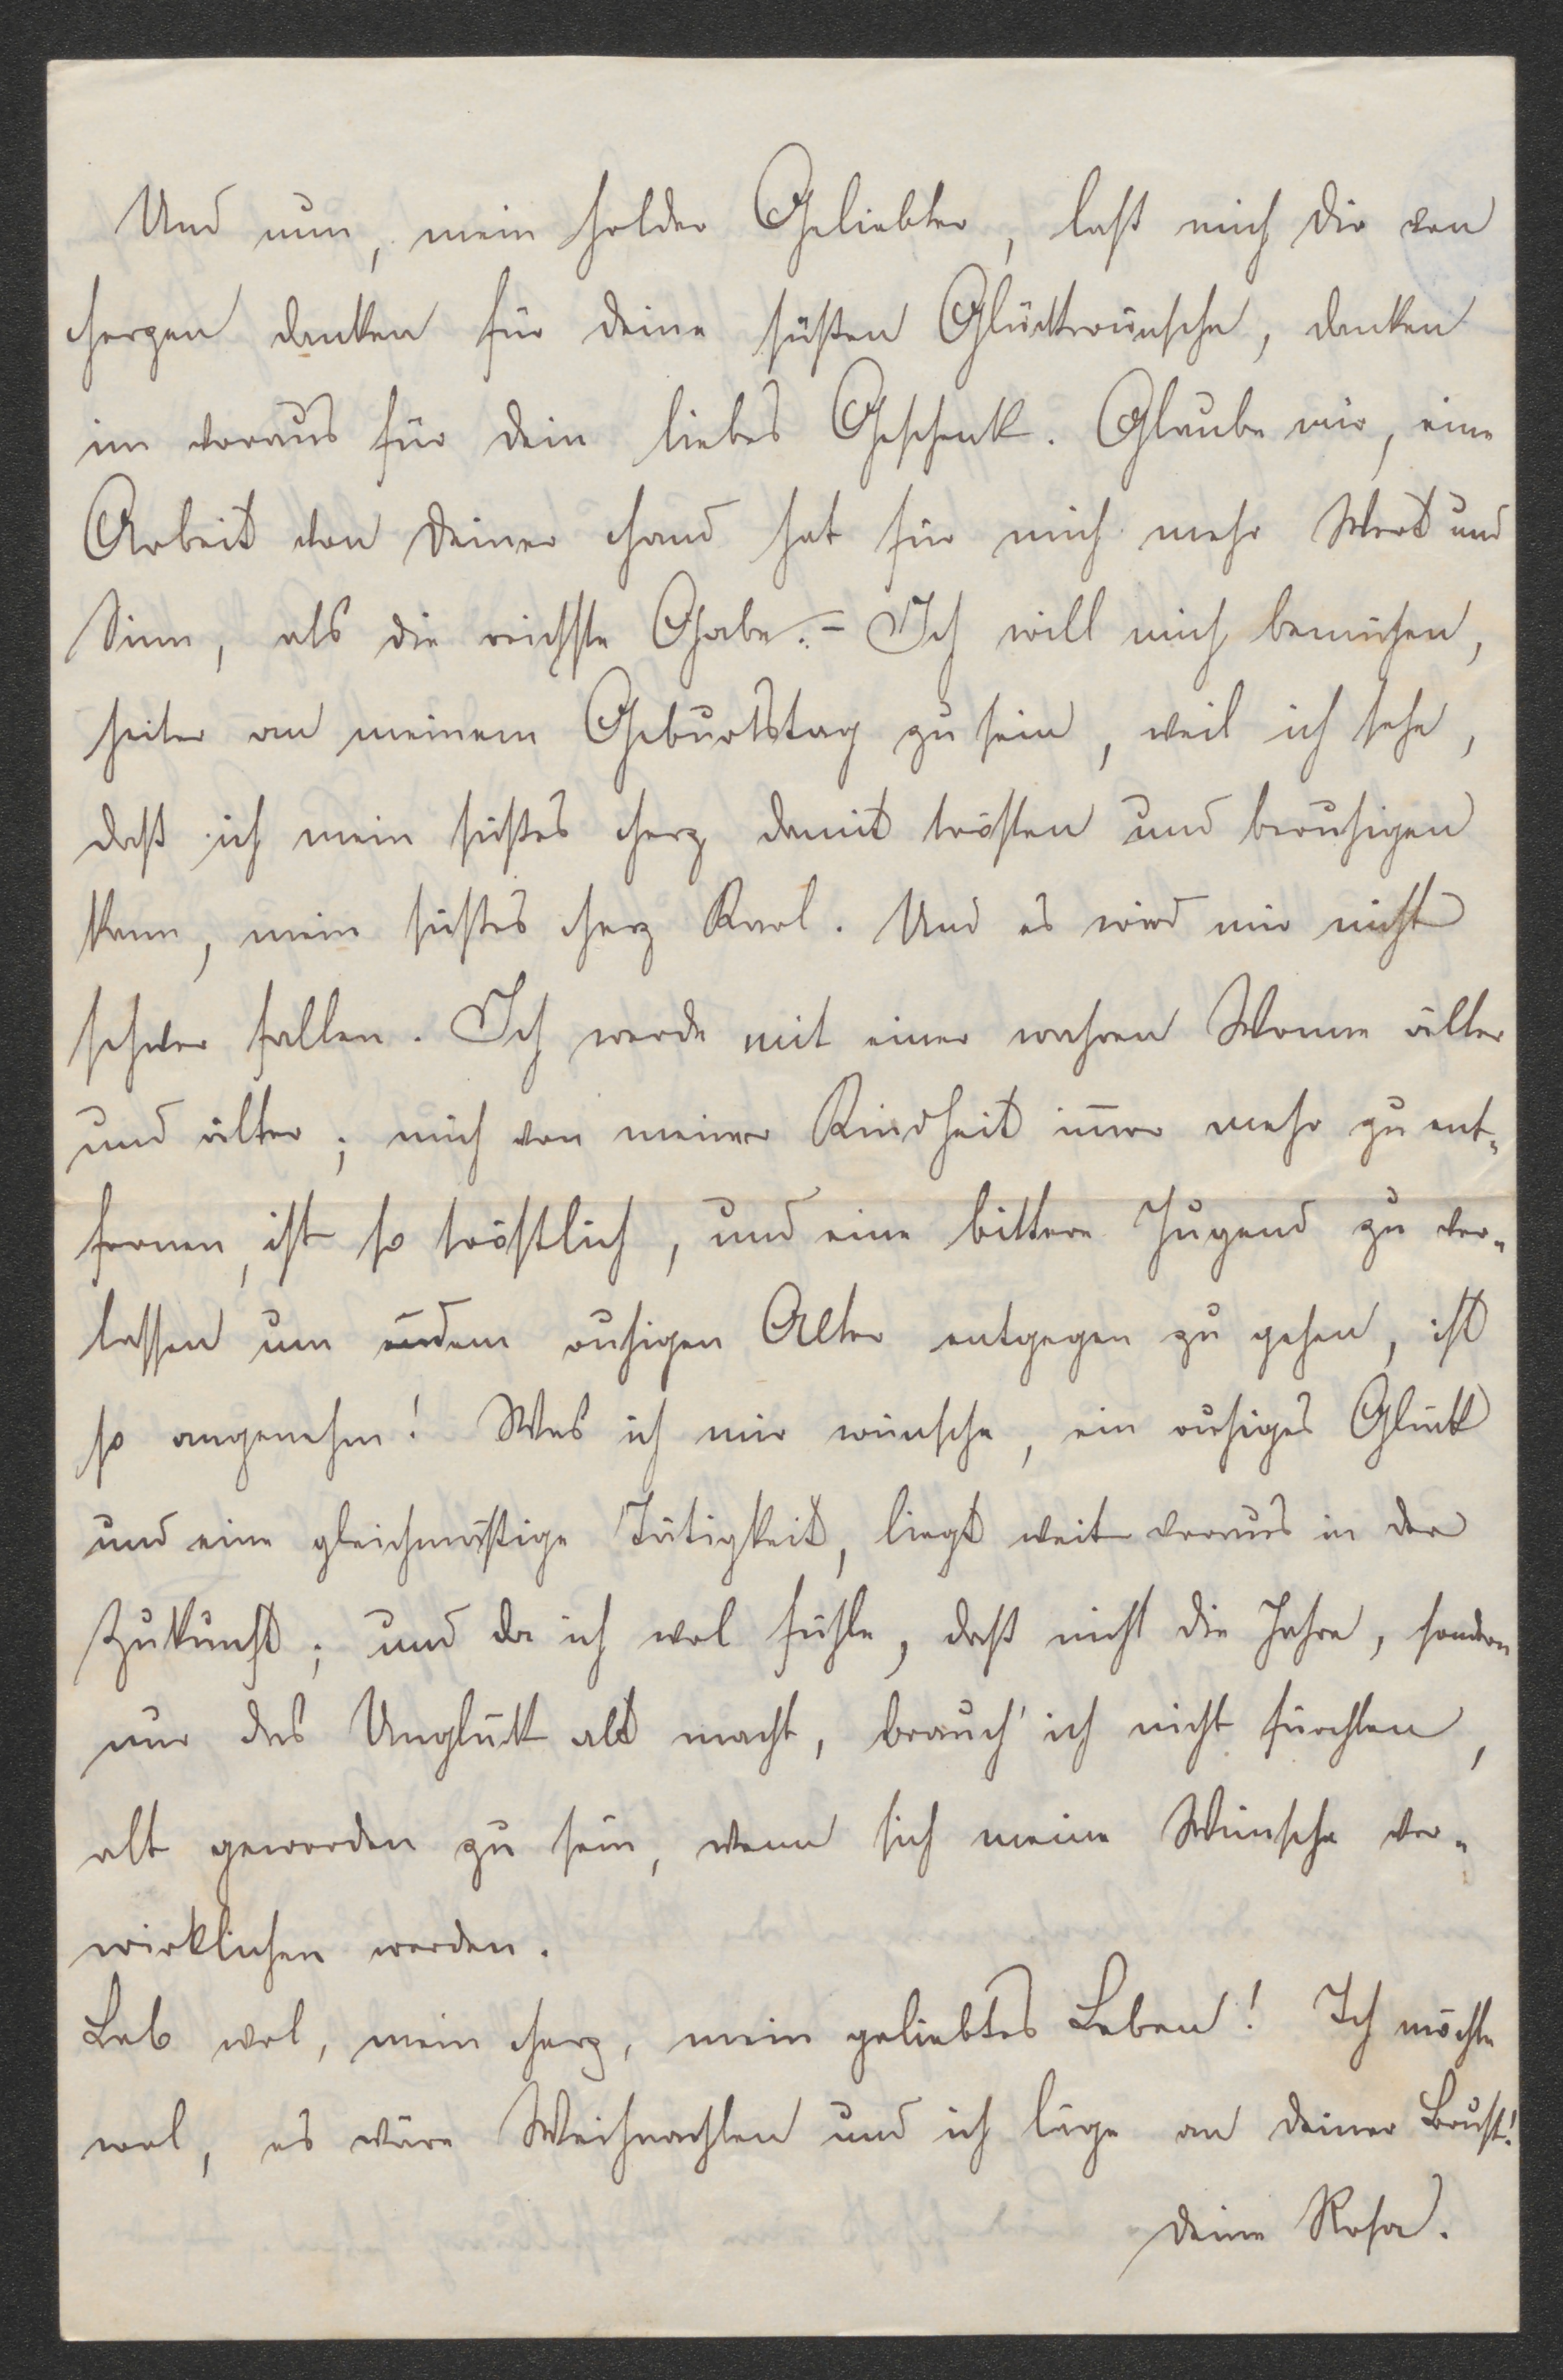 Und nun, mein holder Geliebter, laß mich dir von
Herzen danken für deine süßen Glückwünsche, danken
im voraus für dein liebes Geschenk. Glaube mir, eine
Arbeit von deiner Hand hat für mich mehr Wert und
Sinn, als die reichste Gabe. – Ich will mich bemühen,
heiter an meinem Geburtstag zu sein, weil ich sehe,
daß ich mein süßes Herz damit trösten und beruhigen
kann, mein süßes Herz Karl. Und es wird mir nicht
schwer fallen. Ich werde mit einer wahren Wonne älter
und älter; mich von meiner Kindheit im̄er mehr zu ent-
fernen, ist so tröstlich, und eine bittere Jugend zu ver-
lassen um dem ruhigen Alter entgegen zu gehen, ist
so angenehm! Was ich mir wünsche, ein ruhiges Glück
und eine gleichmäßige Tätigkeit, liegt weit voraus in der
Zukunft; und da ich wol fühle, daß nicht die Jahre, sondern
nur das Unglück alt macht, brauch' ich nicht fürchten,
alt geworden zu sein, wenn sich meine Wünsche ver-
wirklichen werden.
Leb wol, mein Herz, mein geliebtes Leben! Ich möchte
wol, es wäre Weihnachten und ich läge an deiner Brust!
deine Rosa.